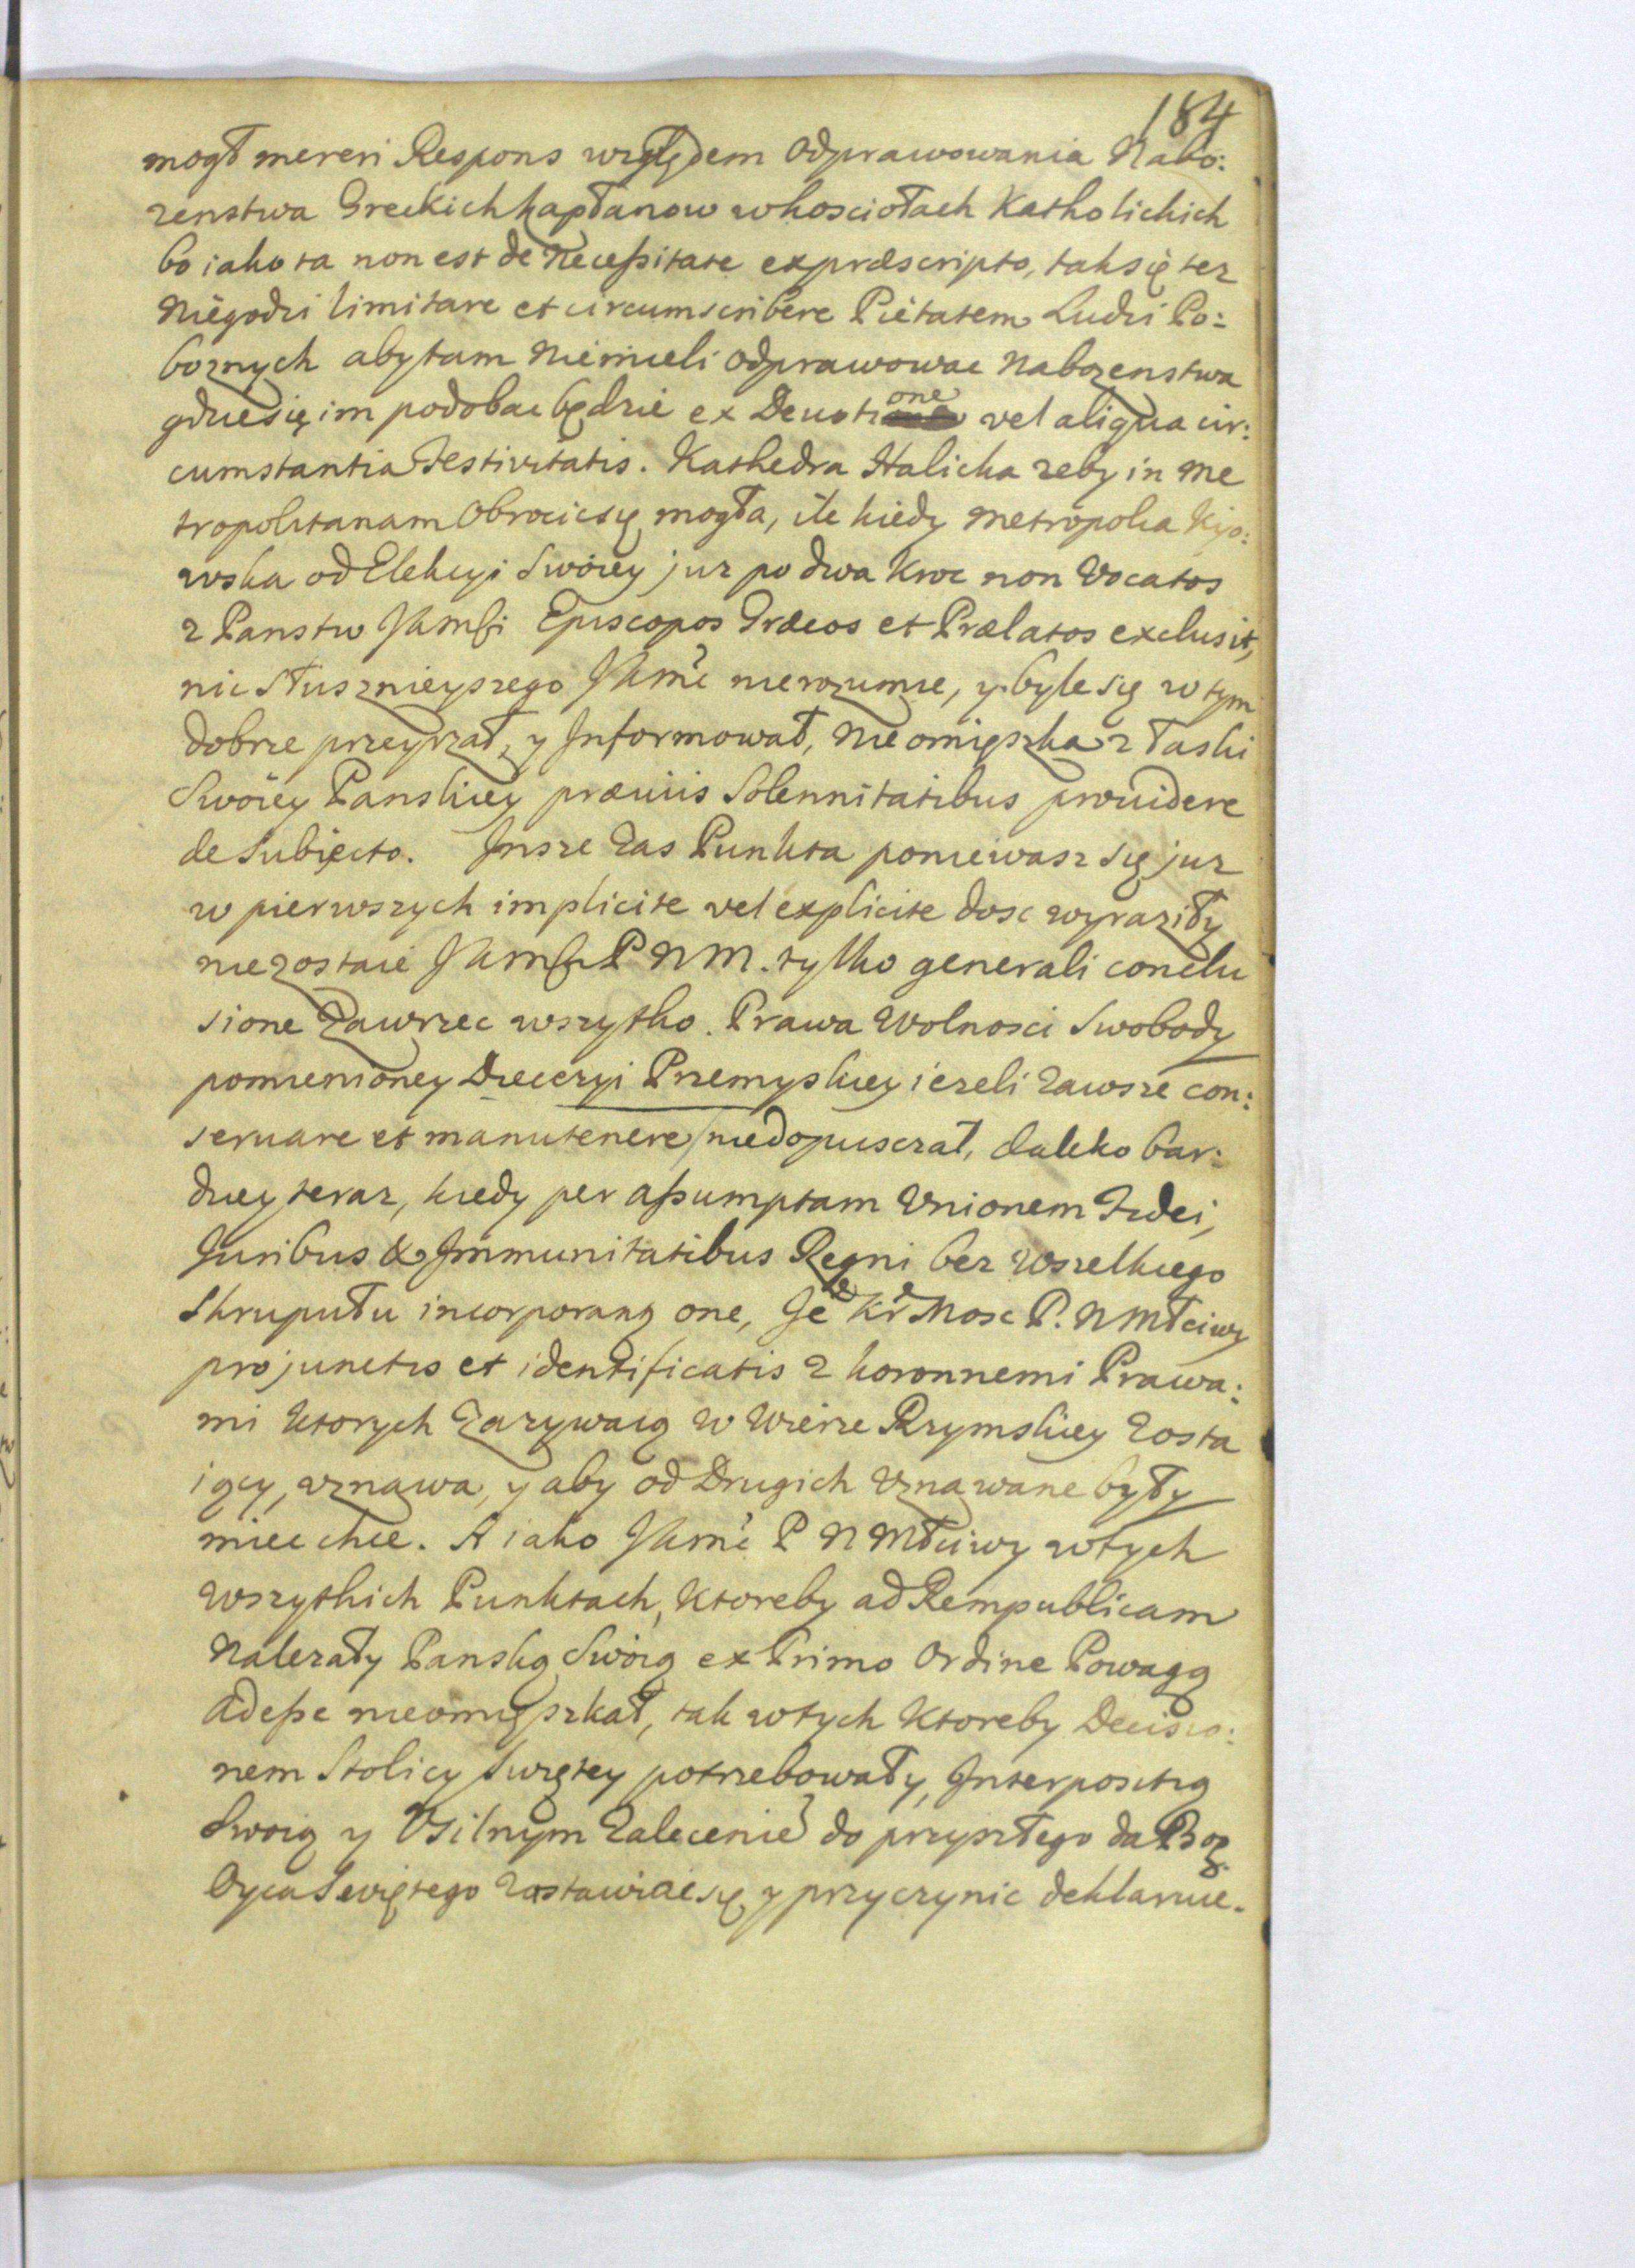 184
mogł mereri Respons względem Odprawowania Nabo:
zenstwa Greckich kapłanow w kosciołach Katholickich
bo iako ta non est de Necessitate ex præscripto, tak się tez
Niegodzi limitare et circumscribere Pietatem Ludzi Po:
boznych aby tam Niemieli Odprawowac Nabozenstwa
gdzie się im podobac będzie ex Devotione vel aliqua cir:
cumstantia Festivitatis. Kathedra Halicka zeby in Me
tropolitanam Obrocic się mogła, ile kiedy Metropolia Kijo:
wska od Elekcyi Swoiey juz po dwa kroc non Vocatos
z Panstw Episcopos Græcos et Prælatos exclusit,
nic słusznieyszego JKmć nierozumie, y byle się w tym
dobrze przeyrzał, y Informował, Nieomięszka z łaski
Swoiey Panskiey præviis Solennitatibus providere
de Subiecto. Insze Zas Punkta poniewasz się juz
w pierwszych implicite vel explicite dosc wyraziły
niezostaie P N M. tylko generali conclu
sione Zawrzec wszytko. Prawa Wolnosci Swobody
pomienioney Dieceryi Przemyskiey iezeli zawsze con:
servare et manutenere niedopuszczał, daleko bar:
dziey teraz, kiedy per assumptam Vnionem Fidei,
Juribus & Immunitatibus Regni bez wszelkiego
Skrupułu incorporaną one, Je Kr Mosc P. N Młciwy
pro junctis et identificatis z koronnemi Prawa:
mi ktorych Zazywaią w Wierze Rzymskiey Zosta
iący, vznawa, y aby od Drugich Vznawane były
miec chce. A iako JKmć P N Młciwy w tych
wszytkich Punktach, ktoreby ad Rempublicam
Nalezały Panską Swoią ex Primo Ordine Powagą
adesse nieomięszkał, tak w tych ktoreby Decisio:
nem Stolicy Swiętey potrzebowały, Interpositią
Swoią y Vsilnym Zalecenie do przyszłego da Bog
Oyca Swiętego zostawiac się y przyczynic deklaruie.